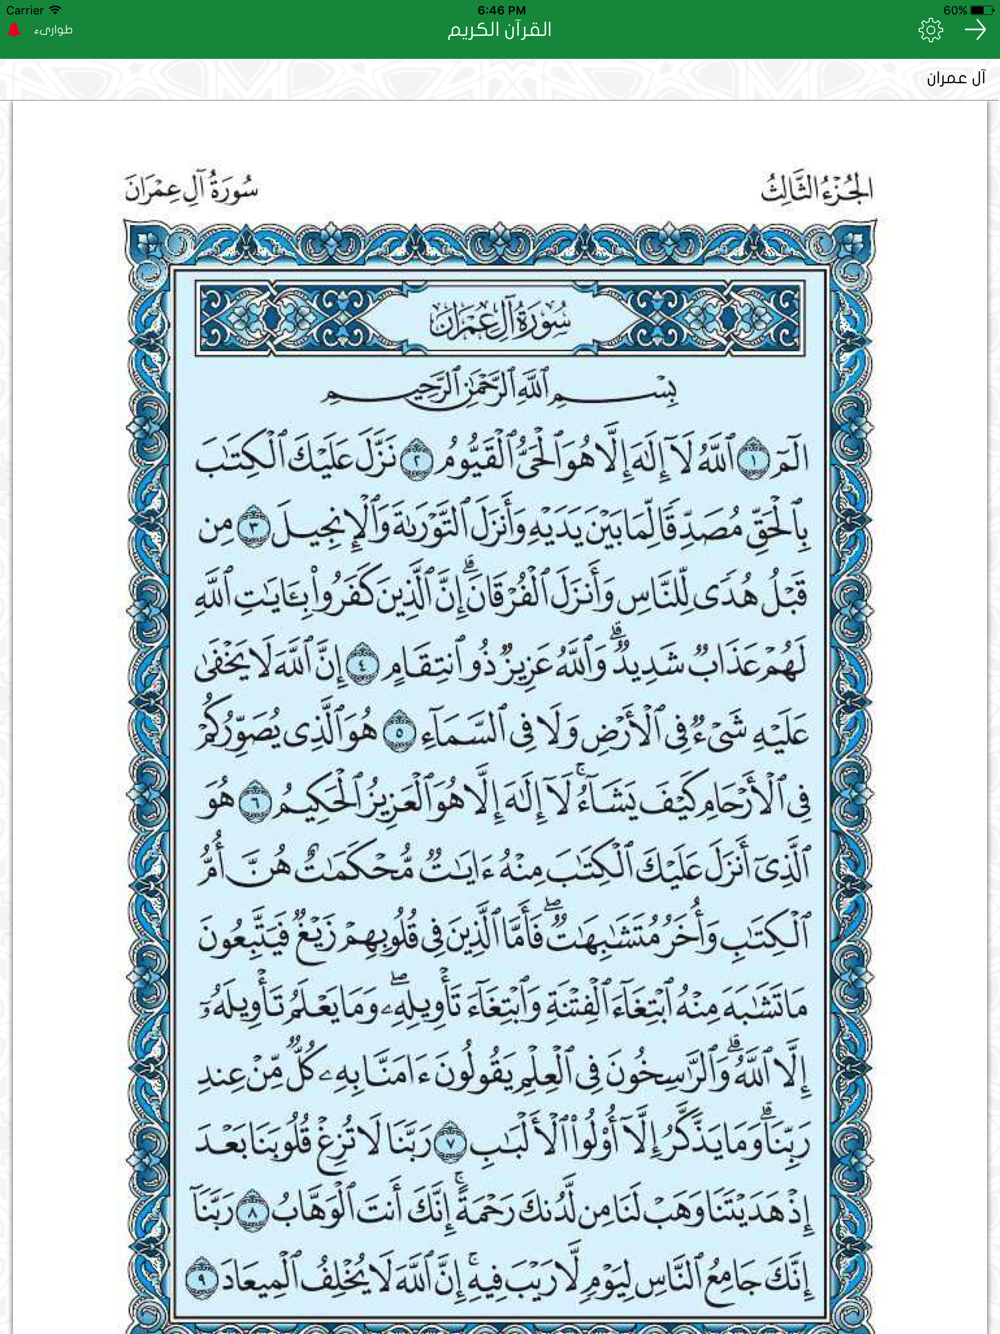 Carrier 6:46 PM 60%
طوارىء القرآن الكريم
آل عمران
الجُزْءُ الثَّالِثُ سُورَةُ آلِ عِمْرَانَ
سُورَةُ آلِ عِمْرَانَ
بِسْمِ ٱللَّهِ ٱلرَّحْمَٰنِ ٱلرَّحِيمِ
الٓمٓ ١ ٱللَّهُ لَآ إِلَٰهَ إِلَّا هُوَ ٱلْحَىُّ ٱلْقَيُّومُ ٢ نَزَّلَ عَلَيْكَ ٱلْكِتَٰبَ
بِٱلْحَقِّ مُصَدِّقًا لِّمَا بَيْنَ يَدَيْهِ وَأَنزَلَ ٱلتَّوْرَىٰةَ وَٱلْإِنجِيلَ ٣ مِن
قَبْلُ هُدًى لِّلنَّاسِ وَأَنزَلَ ٱلْفُرْقَانَ ۗ إِنَّ ٱلَّذِينَ كَفَرُوا۟ بِـَٔايَٰتِ ٱللَّهِ
لَهُمْ عَذَابٌ شَدِيدٌ ۗ وَٱللَّهُ عَزِيزٌ ذُو ٱنتِقَامٍ ٤ إِنَّ ٱللَّهَ لَا يَخْفَىٰ
عَلَيْهِ شَىْءٌ فِى ٱلْأَرْضِ وَلَا فِى ٱلسَّمَآءِ ٥ هُوَ ٱلَّذِى يُصَوِّرُكُمْ
فِى ٱلْأَرْحَامِ كَيْفَ يَشَآءُ ۚ لَآ إِلَٰهَ إِلَّا هُوَ ٱلْعَزِيزُ ٱلْحَكِيمُ ٦ هُوَ
ٱلَّذِىٓ أَنزَلَ عَلَيْكَ ٱلْكِتَٰبَ مِنْهُ ءَايَٰتٌ مُّحْكَمَٰتٌ هُنَّ أُمُّ
ٱلْكِتَٰبِ وَأُخَرُ مُتَشَٰبِهَٰتٌ ۖ فَأَمَّا ٱلَّذِينَ فِى قُلُوبِهِمْ زَيْغٌ فَيَتَّبِعُونَ
مَا تَشَٰبَهَ مِنْهُ ٱبْتِغَآءَ ٱلْفِتْنَةِ وَٱبْتِغَآءَ تَأْوِيلِهِۦ ۖ وَمَا يَعْلَمُ تَأْوِيلَهُۥٓ
إِلَّا ٱللَّهُ ۗ وَٱلرَّٰسِخُونَ فِى ٱلْعِلْمِ يَقُولُونَ ءَامَنَّا بِهِۦ كُلٌّ مِّنْ عِندِ
رَبِّنَا ۗ وَمَا يَذَّكَّرُ إِلَّآ أُو۟لُوا۟ ٱلْأَلْبَٰبِ ٧ رَبَّنَا لَا تُزِغْ قُلُوبَنَا بَعْدَ
إِذْ هَدَيْتَنَا وَهَبْ لَنَا مِن لَّدُنكَ رَحْمَةً ۚ إِنَّكَ أَنتَ ٱلْوَهَّابُ ٨ رَبَّنَآ
إِنَّكَ جَامِعُ ٱلنَّاسِ لِيَوْمٍ لَّا رَيْبَ فِيهِ ۚ إِنَّ ٱللَّهَ لَا يُخْلِفُ ٱلْمِيعَادَ ٩